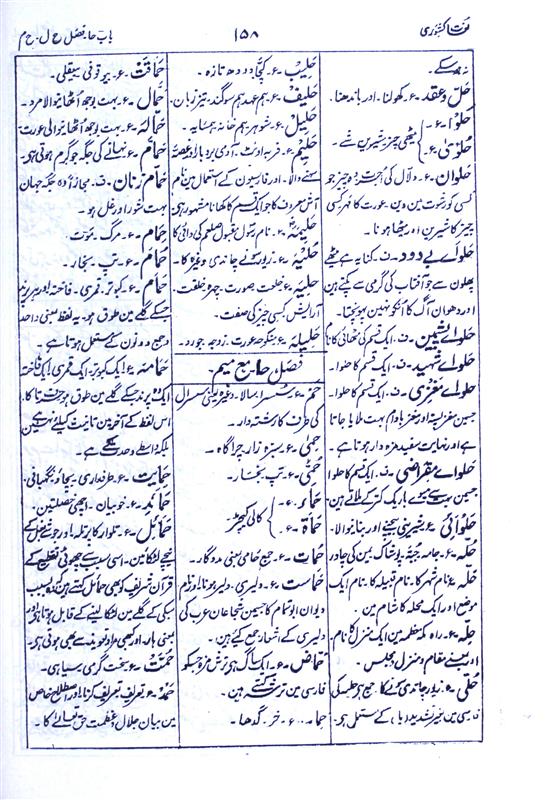 لغات کشوری
۱۵۸
باب حا۔ فصل ح ل۔ ح م
نہ ہو سکے۔
حَلّ و عقد۔ ع۔ کھولنا۔ اور باندھنا۔
حَلْوا۔ ع۔
حَلْویٰ۔ ع۔
میٹھی چیز شیریں شے۔
حُلوان۔ ع۔ دلال کی اجرت وہ چیز جو
کسی کو رشوت میں دیں۔ عورت کا مہر کسی
چیز کا شیریں اور میٹھا ہونا۔
حلوائے بے دود۔ ف۔ کنایہ ہے میٹھے
پھلوں سے جو آفتاب کی گرمی سے پکتے ہیں
اور دھواں آگ کا انکو نہیں پہونچتا۔
ف۔ ایک قسم کی مٹھائی کا نام
حلوائے شہید۔ ف۔ ایک قسم کا حلوا۔
حلوائے مغزی۔ ف۔ ایک قسم کا حلوا۔
جسمیں مغز پستہ اور مغز بادام بہت ملایا جاتا
ہے اور نہایت سفید مزہ دار ہوتا ہے۔
حلوائے مقراضی۔ ف۔ ایک قسم کا حلوا
جسمیں بہت سے میوے باریک کتر کے ملاتے ہیں
حلوائی۔ ع۔ شیرینی بیچنے اور بنانیوالا۔
حلّہ۔ ع۔ جامہ۔ جبّہ۔ پوشاک۔ یمن کی چادر
حلّہ۔ ع۔ نام شہر کا۔ نام قبیلہ کا۔ نام ایک
موضع اور ایک محلہ کا شام میں۔
حلّہ۔ ع۔ راہ مکہ معظمہ میں ایک منزل کا نام
اور بمعنے مقام و منزل و مجلس۔
حُلی۔ ع۔ زیور چاندی سونے کا۔ جمع حلیہ کی
فارسی میں بغیر تشدید (یا) کے مستعمل ہے۔
حلیب۔ ع۔ کچا دودھ تازہ۔
حلیف۔ ع۔ ہم عہد ہم سوگند۔ تیز زبان
حلیل۔ ع۔ شوہر ہم خانہ ہمسایہ۔
حلیم۔ ع۔ فربہ اونٹ۔ آدمی بردبار اور غصہ
سہنے والا۔ اور فارسیوں کے استعمال میں نام
آش معروف کا جو ایک قسم کا کھانا مشہور ہے
حلیمہ۔ ع۔ نام رسول مقبول صلعم کی دائی کا
حلیہ۔ ع۔ زیور سونے چاندی وغیرہ کا۔
حلیہ۔ ع۔ خلعت صورت۔ چہرہ خلقت۔
آرایش کسی چیز کی صفت۔
حلیلہ۔ ع۔ منکوحہ عورت۔ زوجہ۔ جورو۔
فصل حا۔ مع میم۔
حَمْو۔ ع۔ خسر۔ سالا۔ وغیرہ یعنی سسرال
کی طرف کا رشتہ دار۔
حِمیٰ۔ ع۔ سبزہ زار چراگاہ۔
حُمّیٰ۔ ع۔ تپ بخار۔
حَماء۔ ع۔
حَماۃ۔ ع۔
کالی کیچڑ
حُمات۔ ع۔ جمع حامی بمعنی مددگار۔
حماست۔ ع۔ دلیری۔ دلیر ہونا اور نام
دیوان ابوتمام کا جسمیں شجاعان عرب کی
دلیری کے اشعار جمع کیے ہیں۔
حماض۔ ع۔ ایک ساگ ہے ترش مزہ جسکو
فارسی میں ترشہ کہتے ہیں۔
حمار۔ ع۔ خر۔ گدھا۔
حماقت۔ ع۔ بیوقوفی بیعقلی۔
حمّال۔ ع۔ بہت بوجھ اٹھانیوالا مرد۔
حمّالہ۔ ع۔ بہت بوجھ اٹھانیوالی عورت
حمّام۔ ع۔ نہانے کی جگہ جو گرم ہوتی ہے۔
حمّام زنان۔ ف۔ مجازاً وہ جگہ جہاں
بہت شور اور غل ہو۔
حِمام۔ ع۔ مرگ۔ موت۔
حُمام۔ ع۔ تپ۔ بخار۔
حَمام۔ ع۔ کبوتر۔ قمری۔ فاختہ اور ہر پرند
جسکے گلے میں طوق ہو۔ یہ لفظ معنی واحد
و جمع دونوں کے مستعمل ہوتا ہے۔
حمامہ۔ ع۔ ایک کبوتر۔ ایک قمری۔ ایک فاختہ
ایک وہ پرند جسکے گلے میں طوق ہو حرف تا کا
اس لفظ کے آخر میں تانیث کیلئے نہیں ہے
بلکہ واسطے وحدت کے ہے۔
حمایت۔ ع۔ طرفداری۔ بچاؤ۔ نگہبانی۔
حمائد۔ ع۔ خوبیاں۔ اچھی خصلتیں۔
حمائل۔ ع۔ تلوار کا پرتلہ۔ اور جو شے بغل کے
نیچے لٹکائیں۔ اسی سبب سے چھوٹی تقطیع کے
قرآن شریف کو بھی حمائل کہتے ہیں کہ بسبب
سبکی کے گلے میں لٹکا لینے کے قابل ہوتا ہے اور
بمعنی ہار۔ اور کبھی مراد تعویذ سے بھی ہوتی ہے۔
ع۔ سخت گرمی۔ سیاہی۔
حمد۔ ع۔ تعریف۔ تعریف کرنا۔ اور اصطلاح خاص
میں بیان جلال و عظمت حق تعالےٰ کا۔